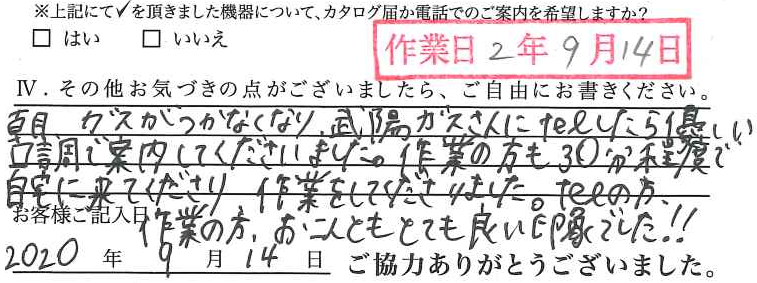 ※上記にて✓を頂きました機器について、カタログ届か電話でのご案内を希望しますか?
□ はい □ いいえ
作業日 2年 9月14日
Ⅳ．その他お気づきの点がございましたら、ご自由にお書きください。
朝、ガスがつかなくなり、武陽ガスさんにtelしたら優しい
口調で案内してくださいました。作業の方も30分程度で
自宅に来てくださり、作業をしてくださりました。telの方、
お客様ご記入日
作業の方、お二人ともとても良い印象でした!!
2020 年 9 月 14 日 ご協力ありがとうございました。